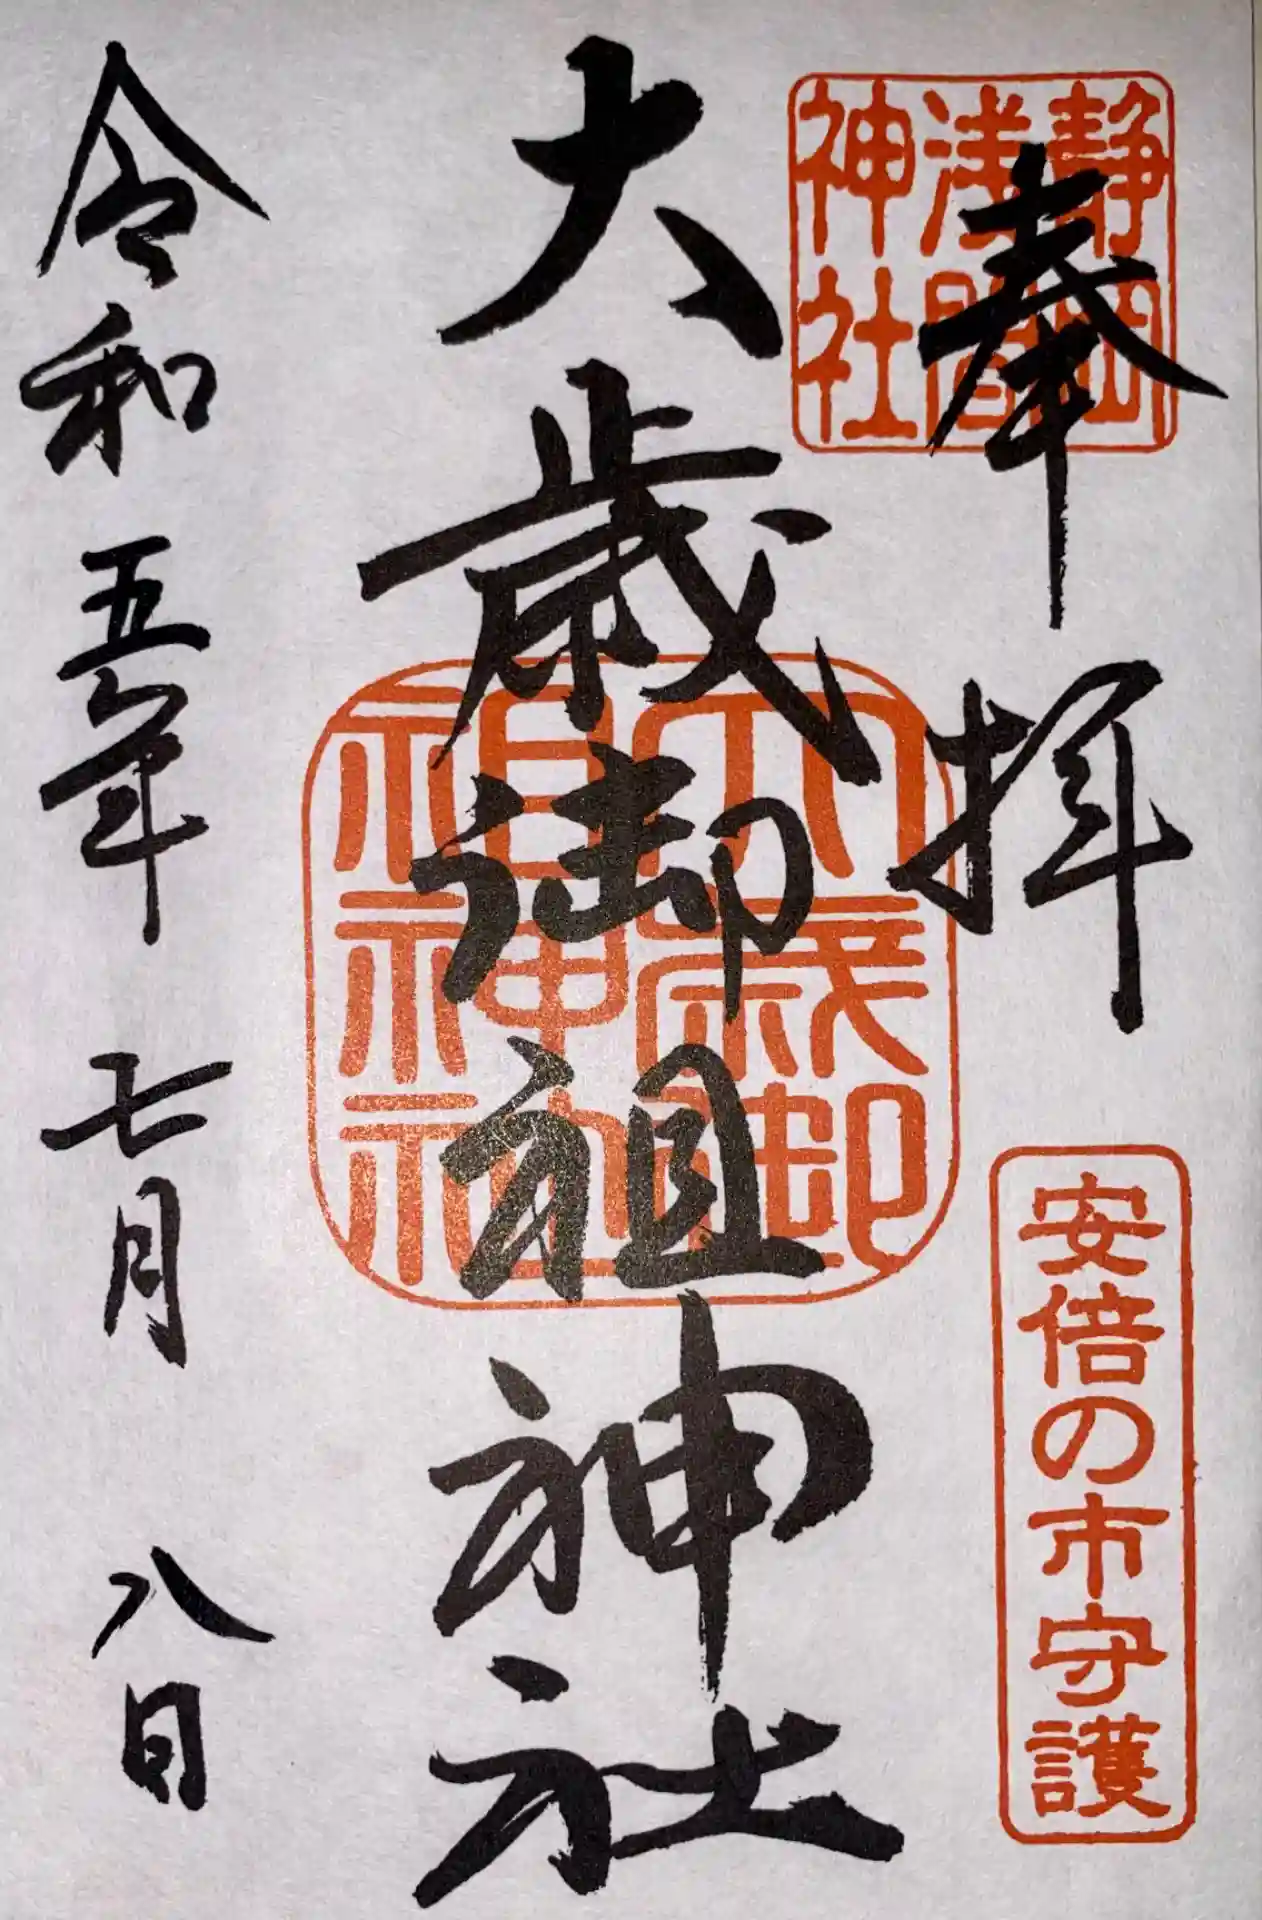 奉拝
静岡
浅間
神社
安倍の市守護
大歳御祖神社
大歳御
祖神社
令和五年七月八日